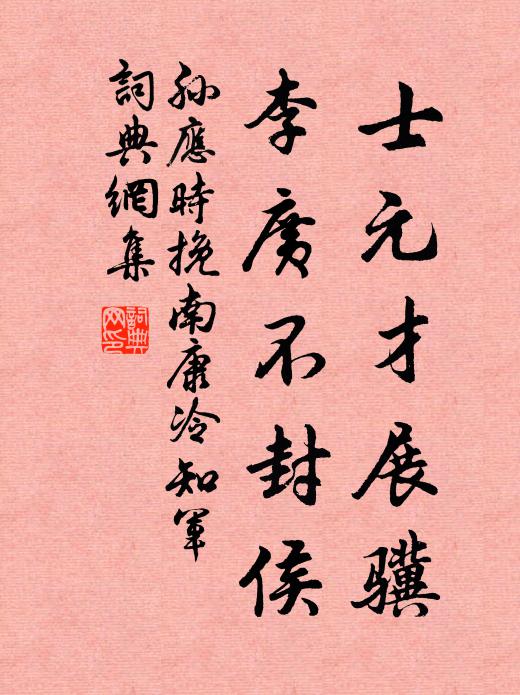 士元才展驥
李廣不封侯
孫應時挽南康冷知軍
詞典網集
詞典網印